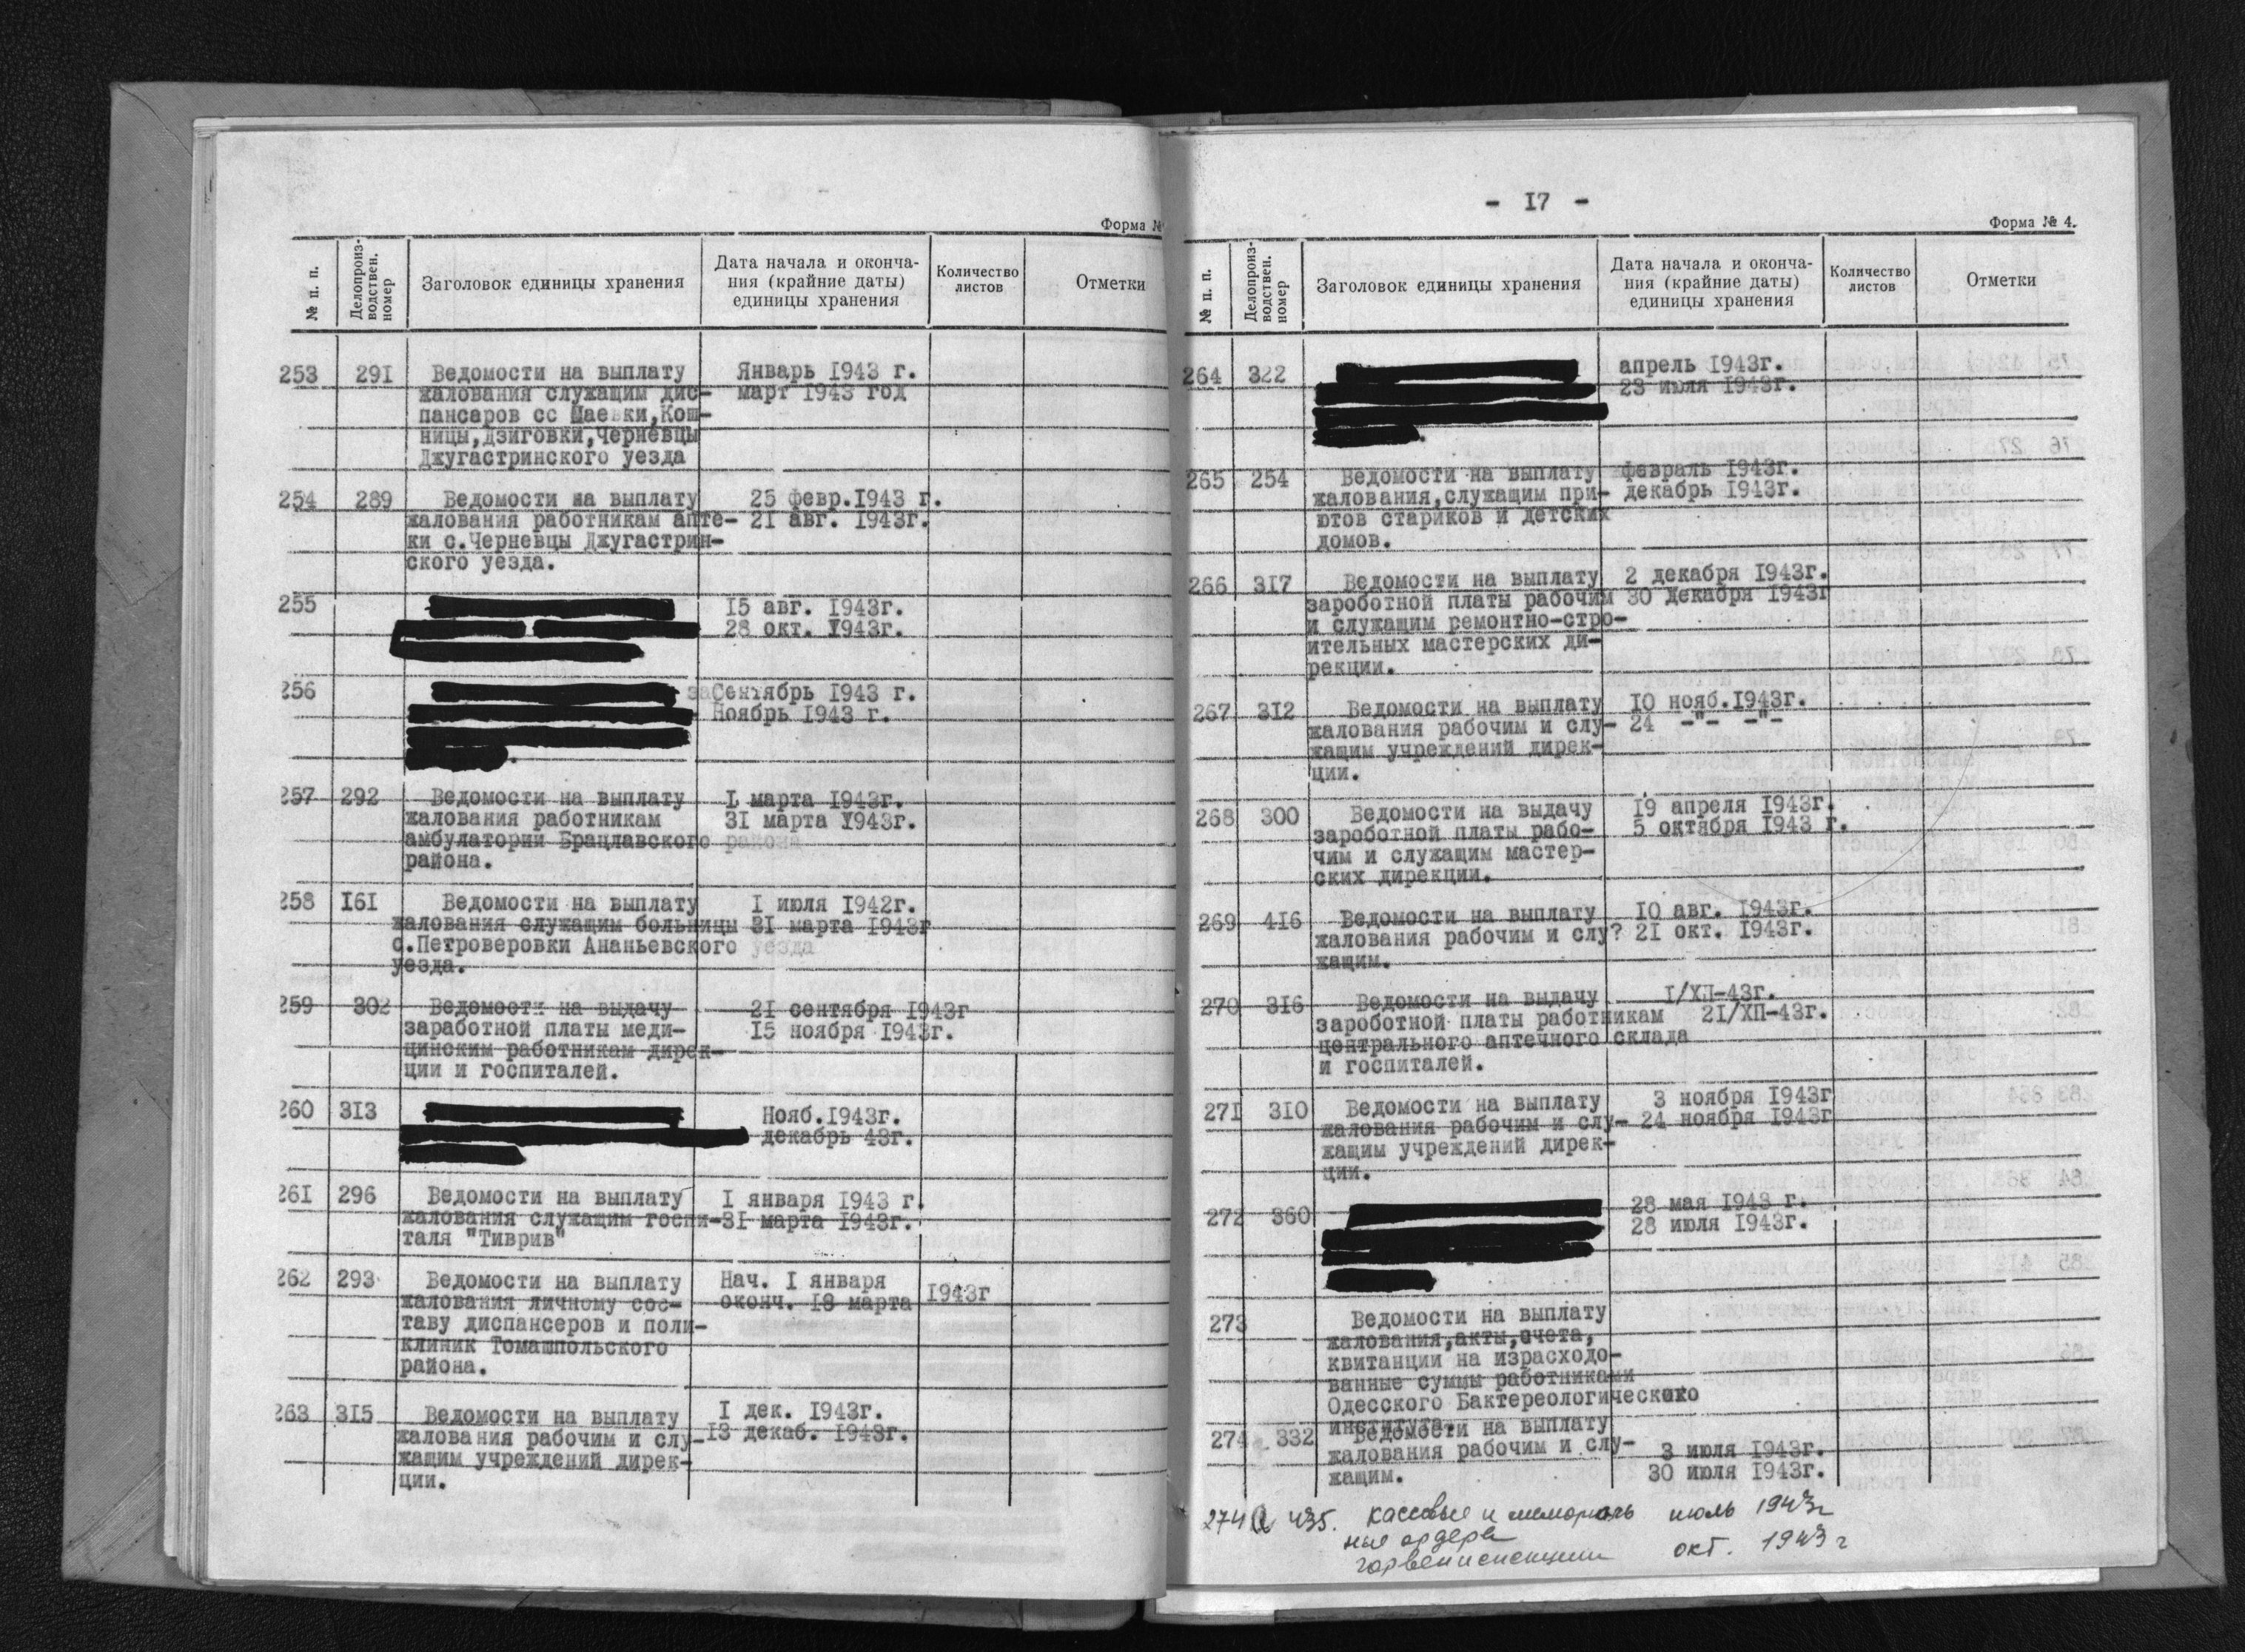 Форма №
№ п. п.
Делопроиз-
водствен.
номер
Заголовок единицы хранения
Дата начала и оконча-
ния (крайние даты)
единицы хранения
Количество
листов
Отметки
253 291 Ведомости на выплату Январь 1943 г.
жалования служащим дис- март 1943 год
пансаров сс Шаевки,Кош-
ницы,Дзиговки,Черневцы
Джугастринского уезда
254 289 Ведомости на выплату 25 февр.1943 г.
жалования работникам апте- 21 авг. 1943г.
ки с.Черневцы Джугастрин-
ского уезда.
255 15 авг. 1943г.
28 окт. 1943г.
256 за Сентябрь 1943 г.
Ноябрь 1943 г.
257 292 Ведомости на выплату 1 марта 1943г.
жалования работникам 31 марта 1943г.
амбулатории Брацлавского района
района.
258 161 Ведомости на выплату I июля 1942г.
жалования служащим больницы 31 марта 1943г
с.Петроверовки Ананьевского уезда
уезда.
259 302 Ведомости на выдачу 21 сентября 1943г
заработной платы меди- 15 ноября 1943г.
цинским работникам дирек-
ции и госпиталей.
260 313 Нояб.1943г.
декабрь 43г.
261 296 Ведомости на выплату I января 1943 г.
жалования служащим госпи- 31 марта 1943г.
таля "Тиврив"
262 293 Ведомости на выплату Нач. I января
жалования личному сос- оконч. 18 марта 1943г
таву диспансеров и поли-
клиник Томашпольского
района.
263 315 Ведомости на выплату I дек. 1943г.
жалования рабочим и слу- 13 декаб. 1943г.
жащим учреждений дирек-
ции.
- 17 -
Форма № 4.
№ п. п.
Делопроиз-
водствен.
номер
Заголовок единицы хранения
Дата начала и оконча-
ния (крайние даты)
единицы хранения
Количество
листов
Отметки
264 322 апрель 1943г.
23 июля 1943г.
265 254 Ведомости на выплату февраль 1943г.
жалования,служащим при- декабрь 1943г.
ютов стариков и детских
домов.
266 317 Ведомости на выплату 2 декабря 1943г.
зароботной платы рабочим 30 декабря 1943г
и служащим ремонтно-стро-
ительных мастерских ди-
рекции.
267 312 Ведомости на выплату 10 нояб.1943г.
жалования рабочим и слу- 24 -"- -"-
жащим учреждений дирек-
ции.
268 300 Ведомости на выдачу 19 апреля 1943г.
зароботной платы рабо- 5 октября 1943 г.
чим и служащим мастер-
ских дирекции.
269 416 Ведомости на выплату 10 авг. 1943г.
жалования рабочим и слу? 21 окт. 1943г.
жащим.
270 316 Ведомости на выдачу I/ХП-43г.
зароботной платы работникам 21/ХП-43г.
центрального аптечного склада
и госпиталей.
271 310 Ведомости на выплату 3 ноября 1943г
жалования рабочим и слу- 24 ноября 1943г
жащим учреждений дирек-
ции.
272 360 28 мая 1943 г.
28 июля 1943г.
273 Ведомости на выплату
жалования,акты,счета,
квитанции на израсходо-
ванные суммы работниками
Одесского Бактереологического
института.
274 332 Ведомости на выплату
жалования рабочим и слу- 3 июля 1943г.
жащим. 30 июля 1943г.
274а 435. Кассовые и мемориаль июль 1943г
ные ордера окт. 1943 г